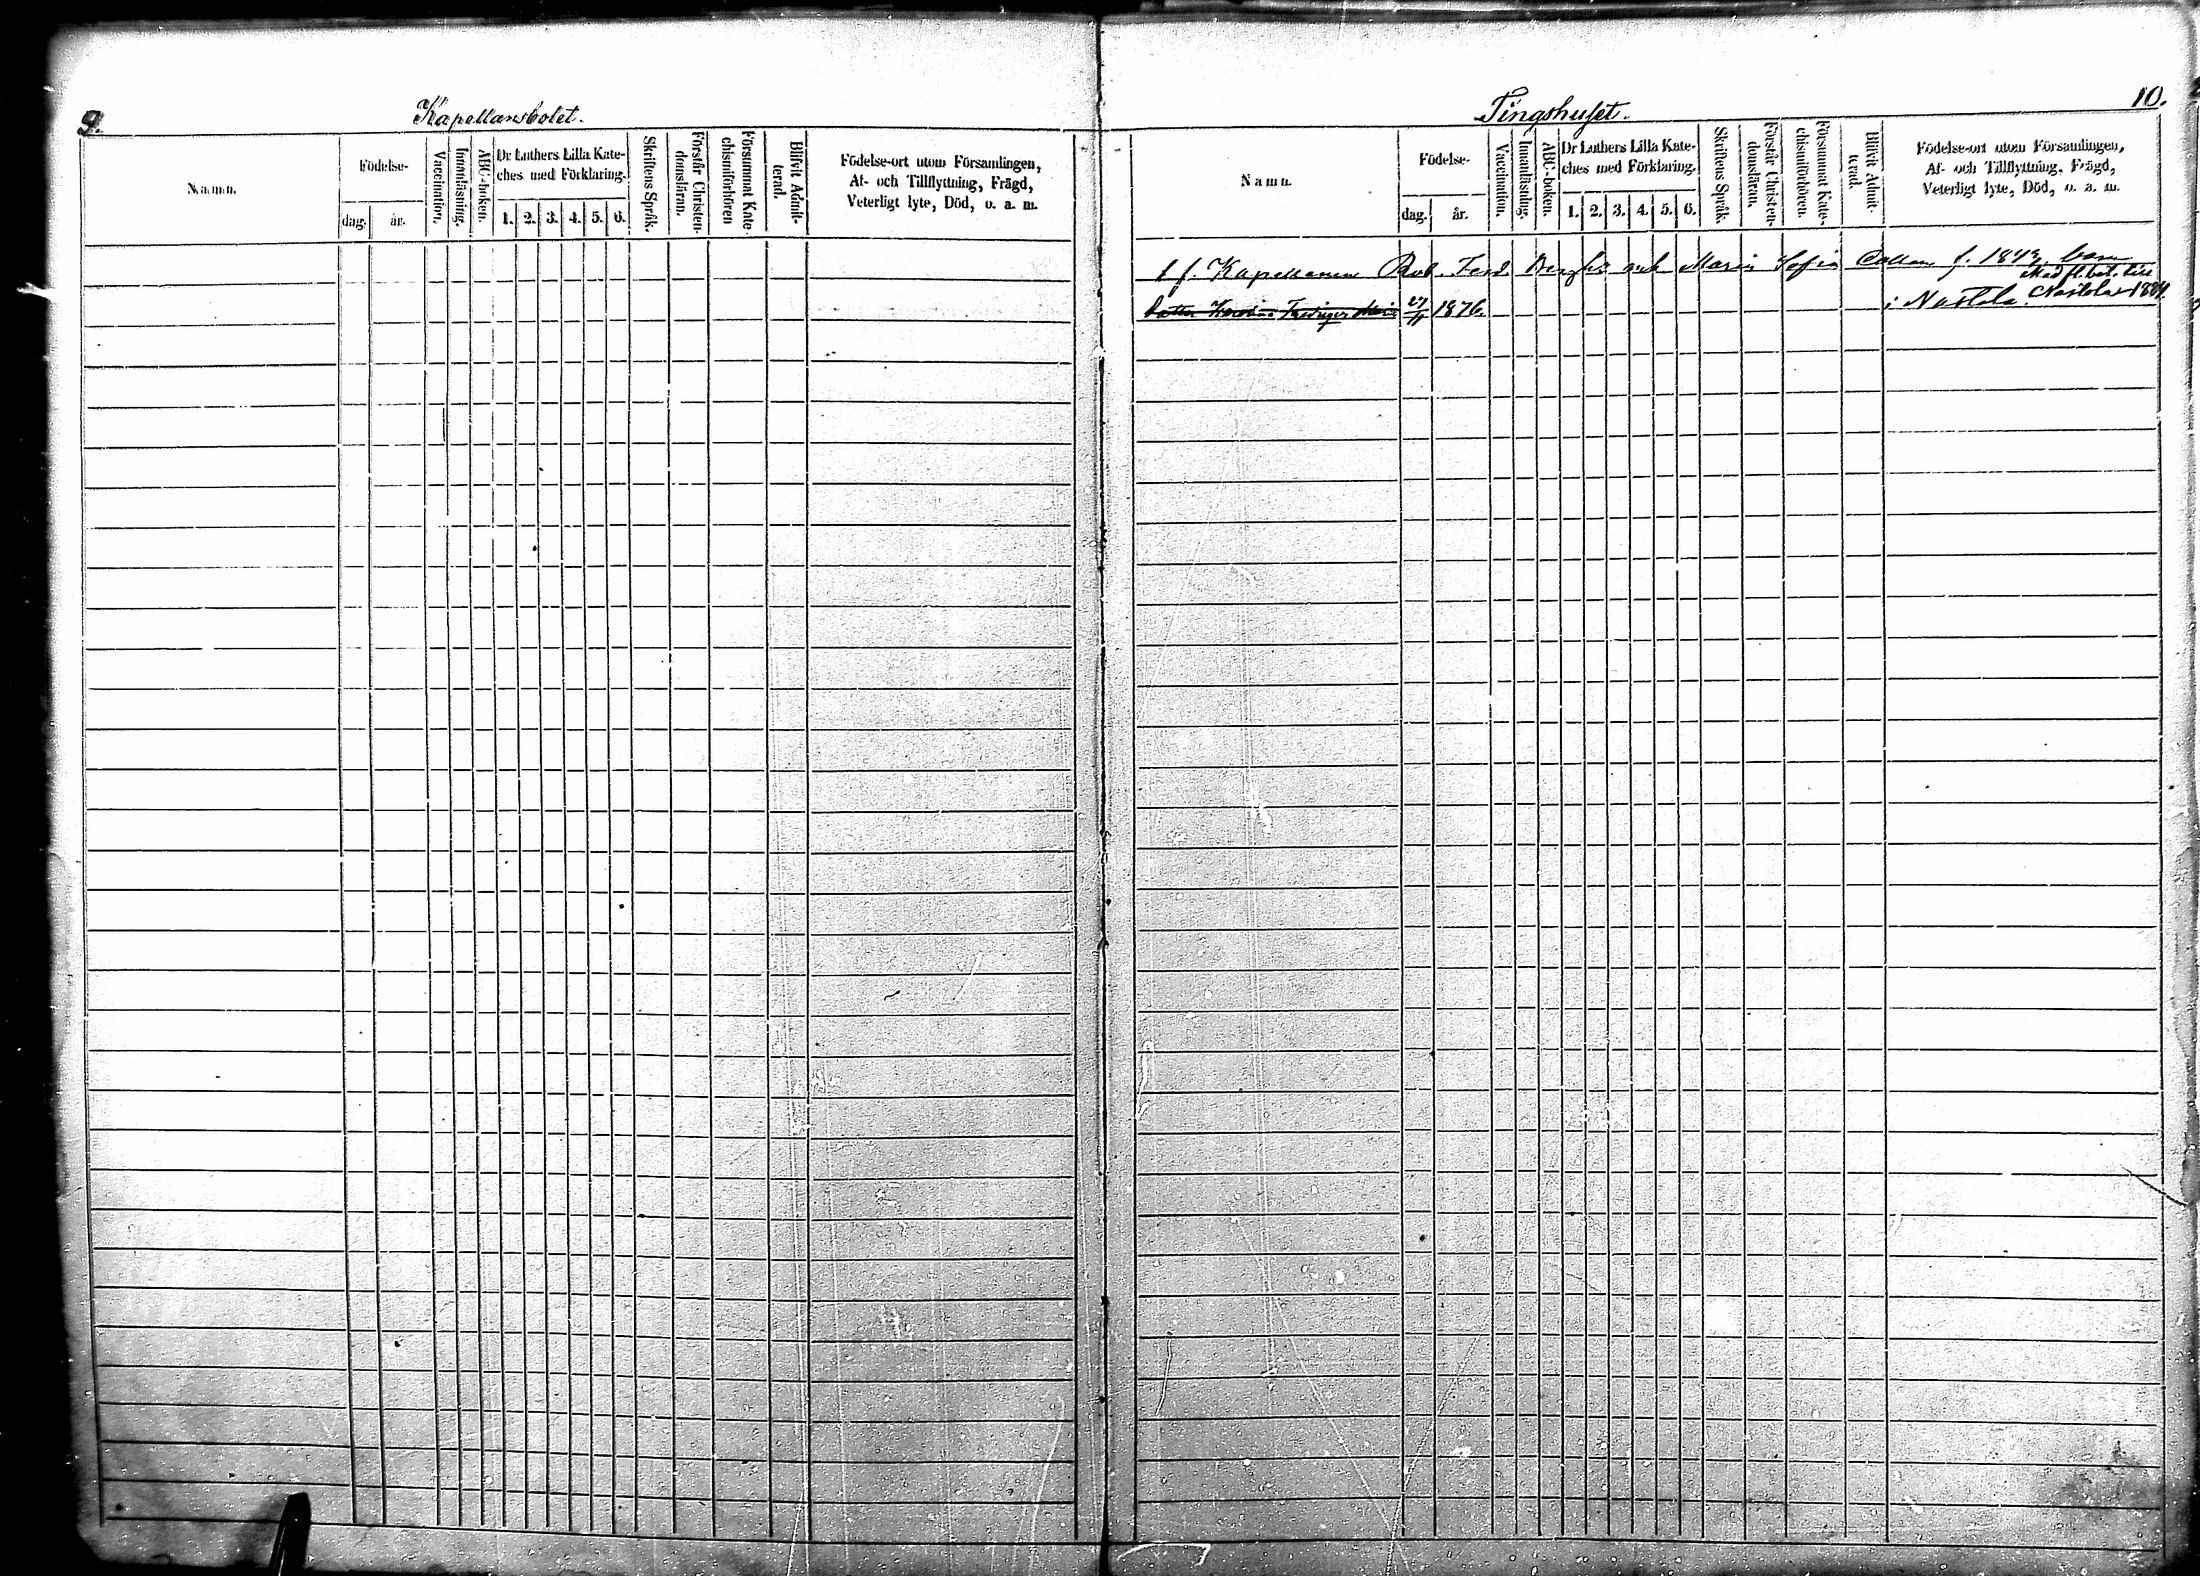 9.
Kapellansbolet.
Namn.
Födelse-
dag.
år.
Vaccination.
Innanläsning.
ABC-boken.
Dr Luthers Lilla Kate-
ches med Förklaring.
1. 2. 3. 4. 5. 6.
Skriftens Språk.
Förstår Christen-
domsläran.
Försummat Kate-
chismiförhören
Blifvit Admit-
terad.
Födelse-ort utom Församlingen,
Af- och Tillflyttning, Frägd,
Veterligt lyte, Död, o. a. m.
10.
Tingshuset.
Namn.
Födelse-
dag.
år.
Vaccination.
Innanläsning.
ABC-boken.
Dr Luthers Lilla Kate-
ches med Förklaring.
1. 2. 3. 4. 5. 6.
Skriftens Språk.
Förstår Christen-
domsläran.
Försummat Kate-
chismiförhören.
Blifvit Admit-
terad.
Födelse-ort utom Församlingen,
Af- och Tillflyttning, Frägd,
Veterligt lyte, Död, o. a. m.
t f. Kapellanen Rob. Ferd. och Maria Sofia f. 1843, barn
Med fl. bet. till
Dotter 27/11 1876. i Nastola. Nastola 1884.